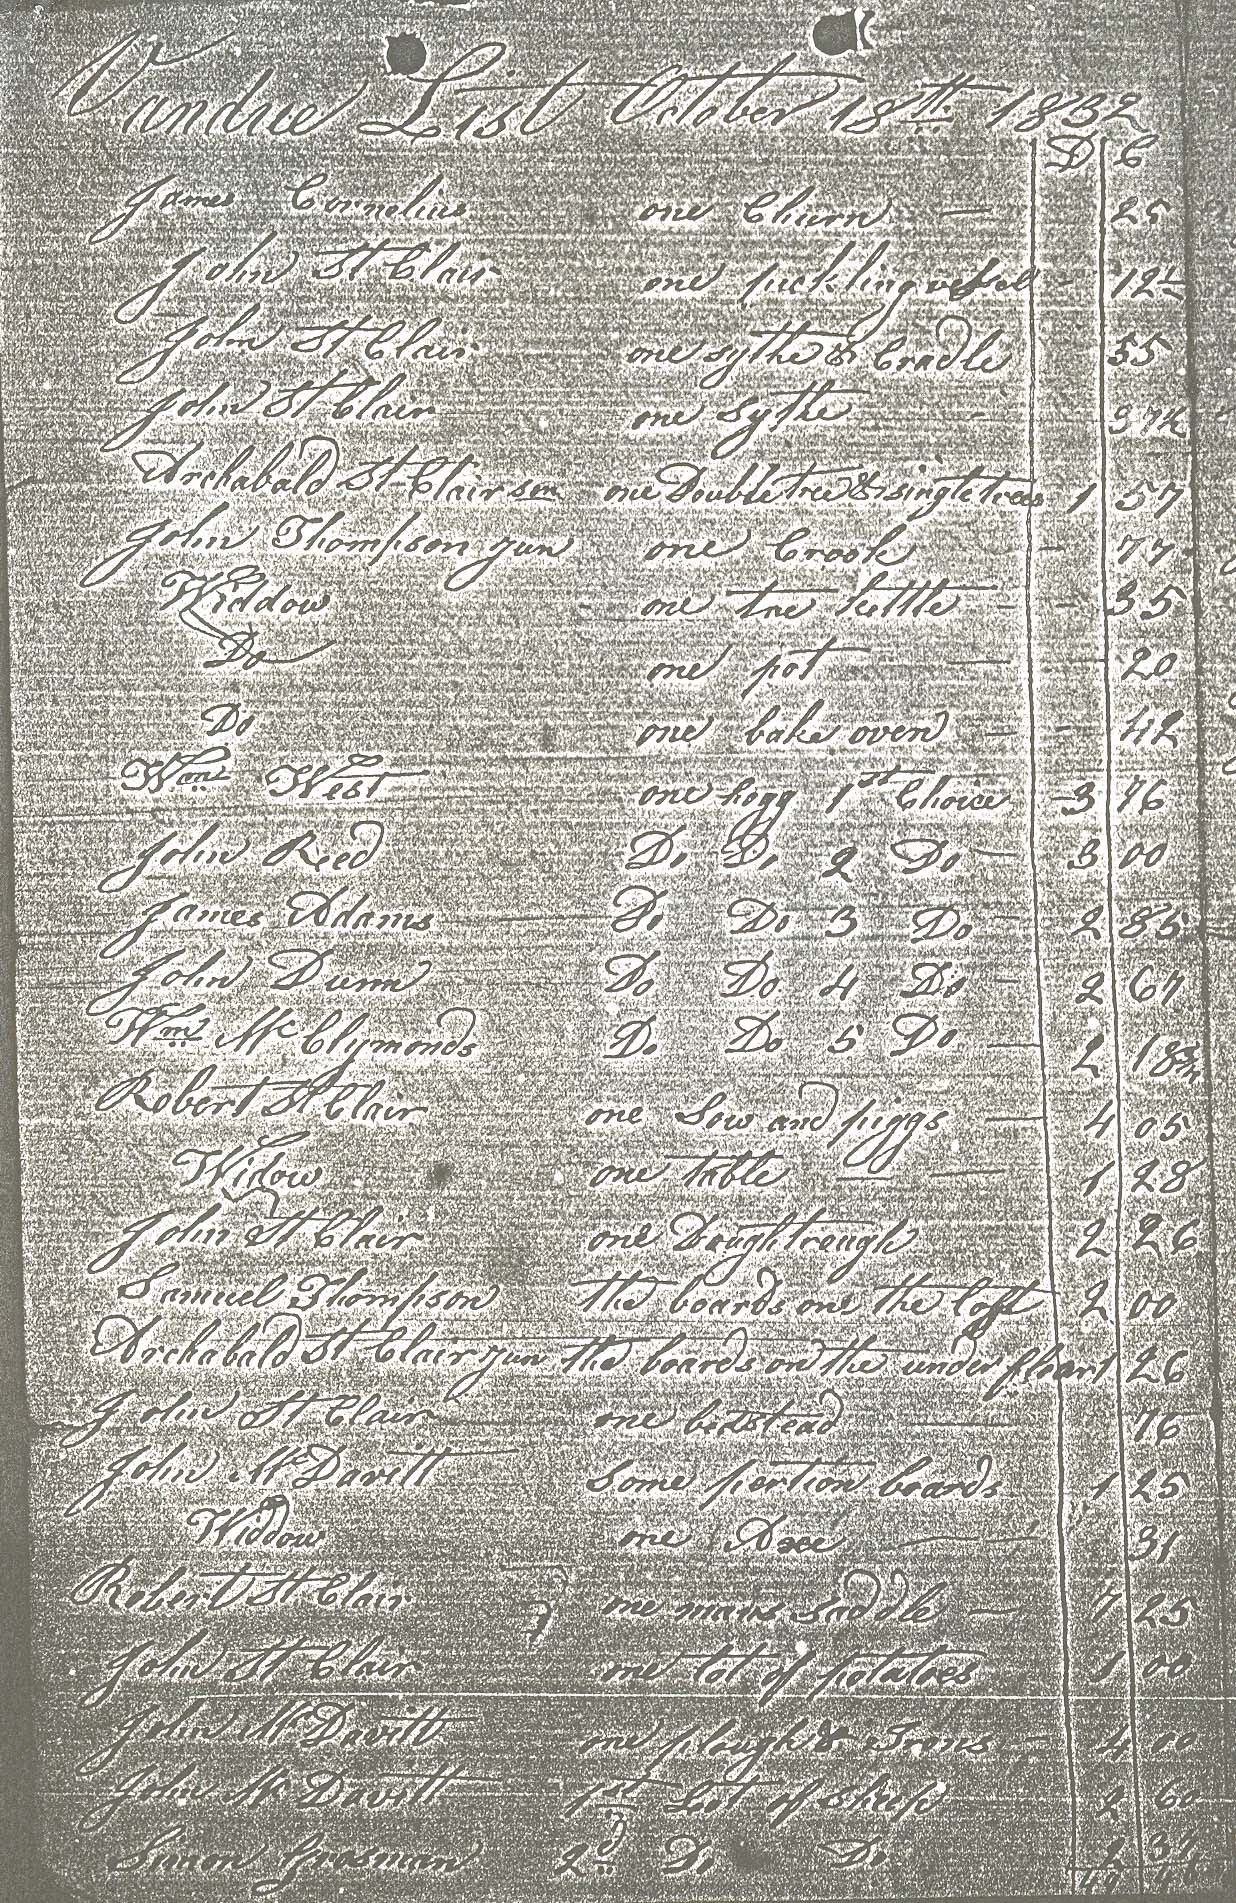 Vandue List October 18th 1832
D C
James Cornelius one Churn — 25
John St Clair one pickling vessel - 12 1/2
John St Clair one sythe & Cradle 55
John St Clair one Sythe - 37 1/2
Archabald St Clair sen one Double tree & single trees 1 57
John Thompson jun one Crook — 77
Widdow one tea kettle - - 35
Do one pot — 20
Do one bake oven - - 42
Wm West one hogg 1st Choice 3 76
John Reed Do Do 2 Do — 3 00
James Adams Do Do 3 Do - 2 85
John Dunn Do Do 4 Do - 2 67
Wm McClymonds Do Do 5 Do — 2 18 3/4
Robert St Clair one Sow and piggs — 4 05
Widow one table — — 1 28
John St Clair one Doughtrough 2 26
Samuel Thompson the boards one the loft 2 00
Archabald St Clair jun the boards on the under floar 1 26
John St Clair one bedstead — 76
John McDavitt some pertion boards 1 25
Widdow one Axe — 31
Robert St Clair one mans Saddle — 7 25
John St Clair one lot of potatoes 1 00
John McDavitt one plough & Irons - 4 00
John McDavitt 1st Lot of Sheep - 2 60
Simon 2d Do Do